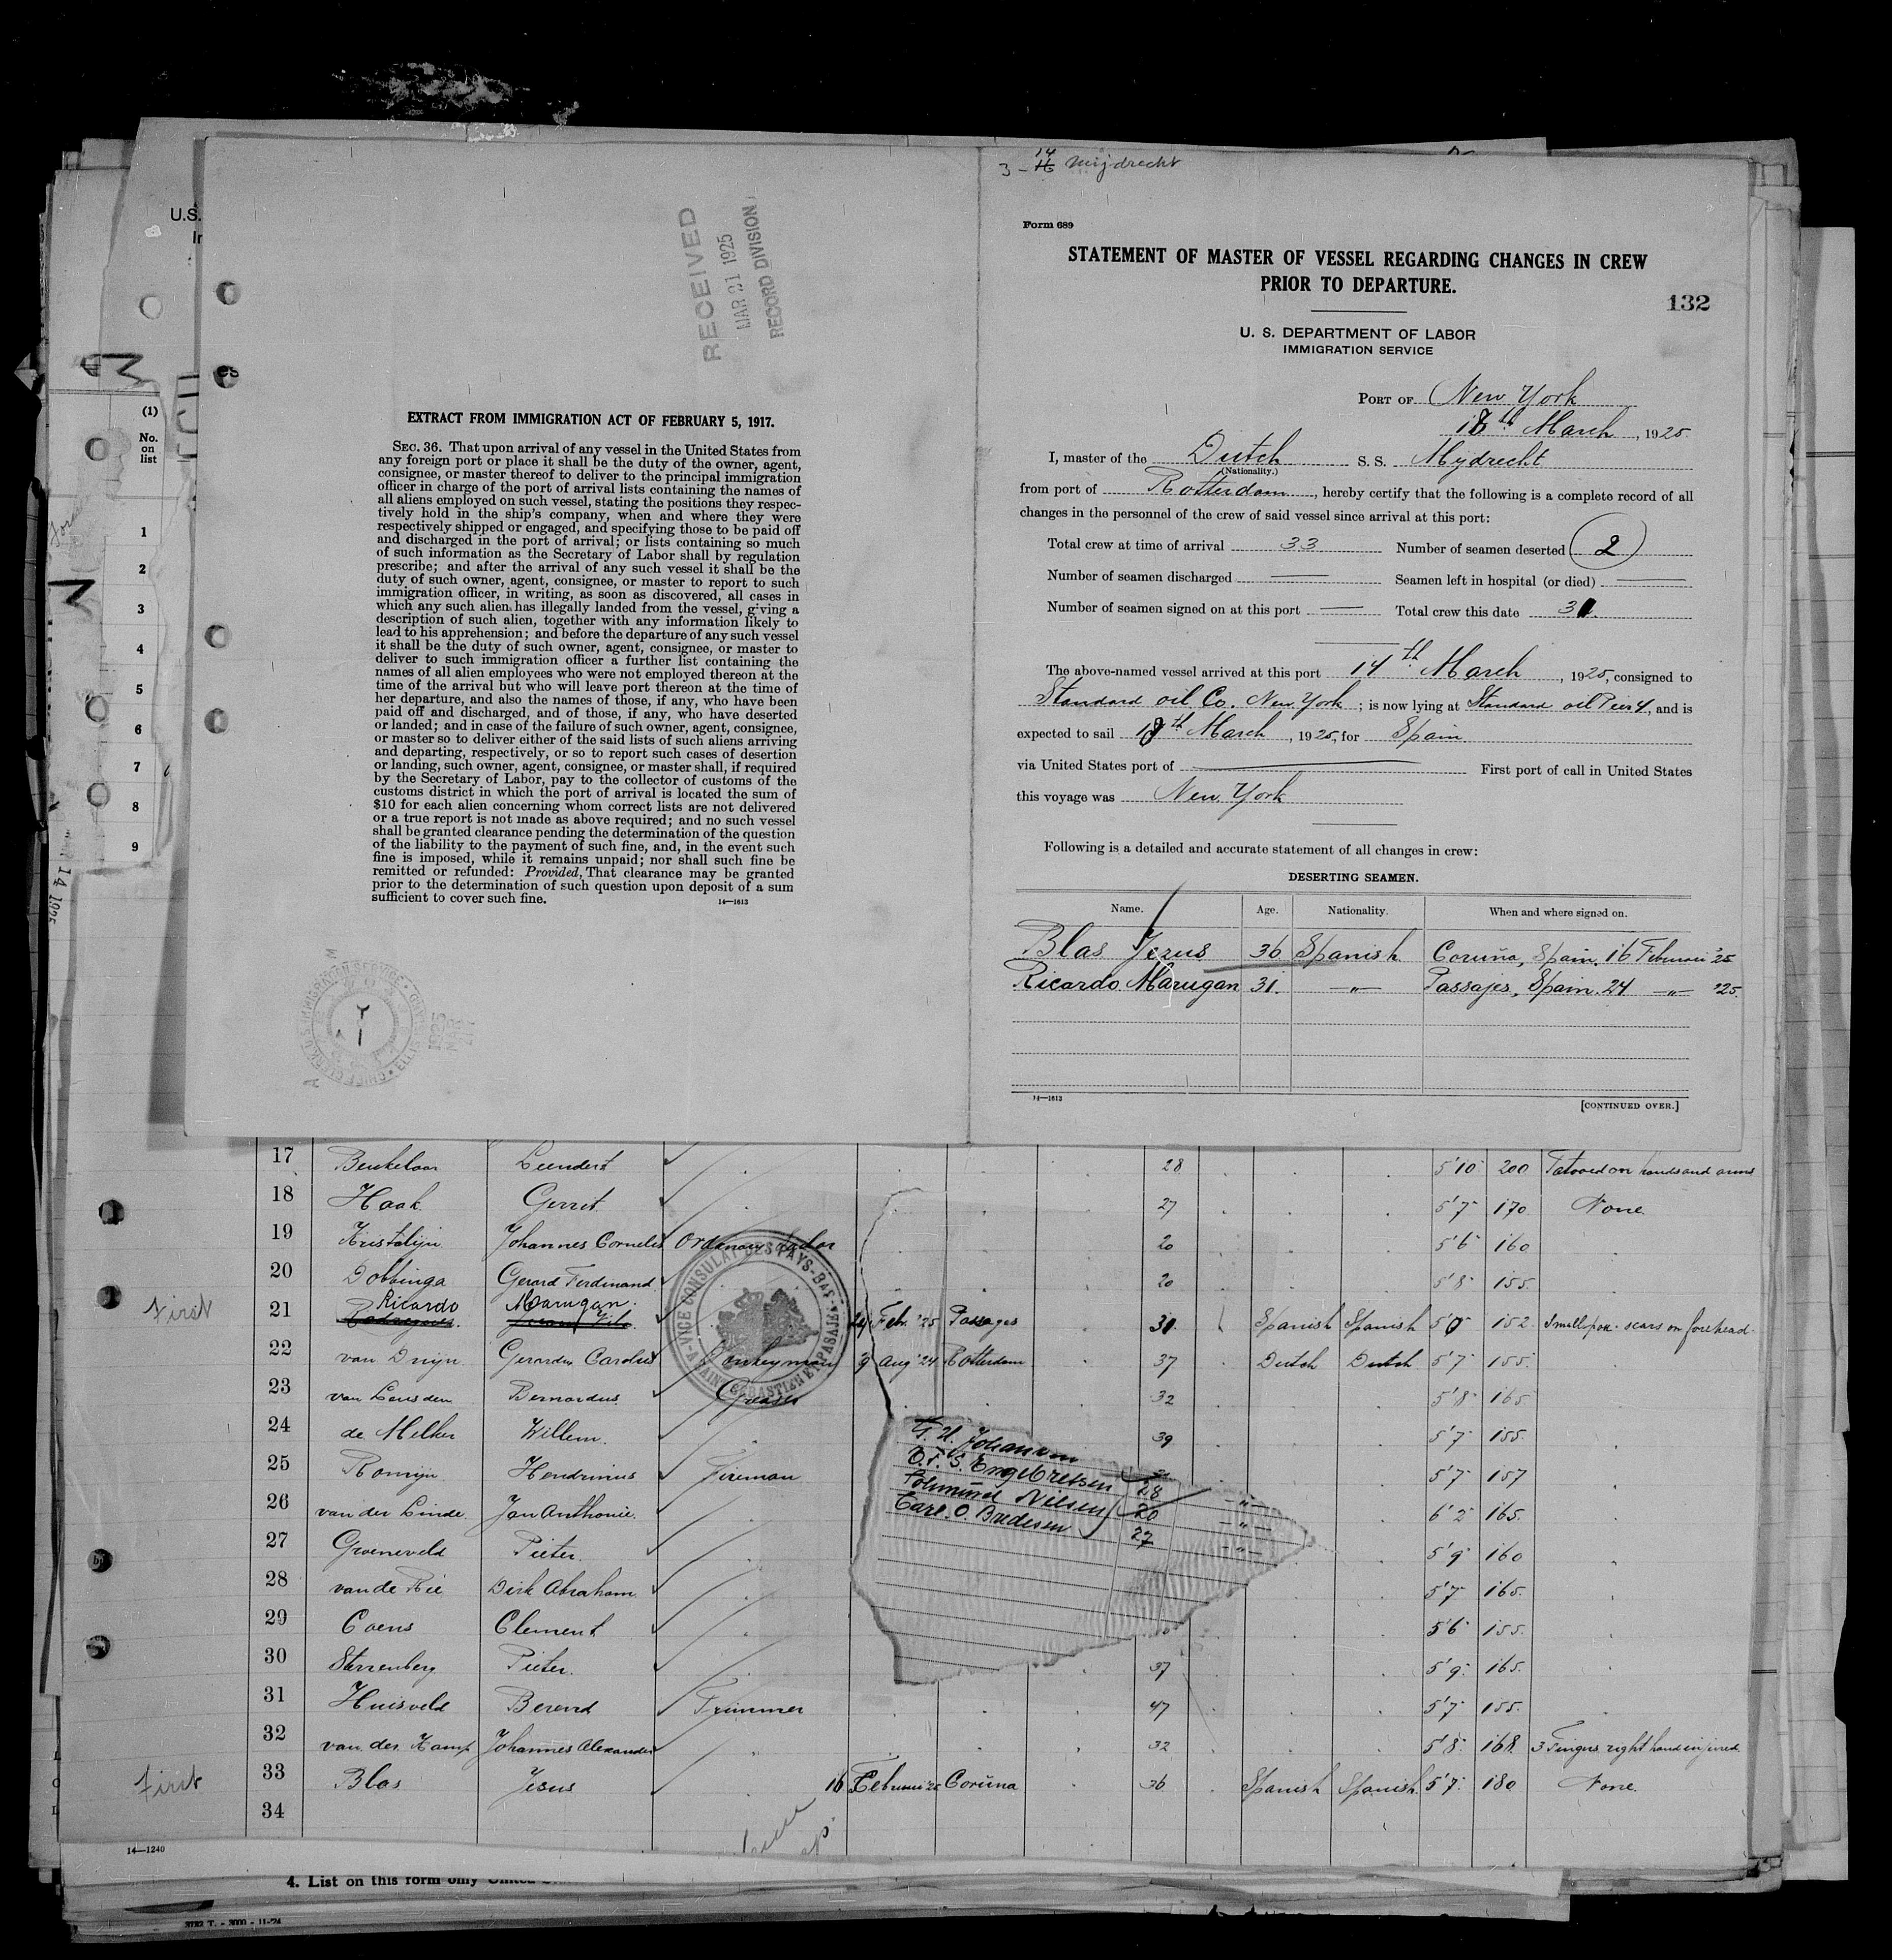 3 – 14 Mijdrecht
U.S.
RECEIVED
MAR 21 1925
RECORD DIVISION
EXTRACT FROM IMMIGRATION ACT OF FEBRUARY 5, 1917.
SEC. 36. That upon arrival of any vessel in the United States from
any foreign port or place it shall be the duty of the owner, agent,
consignee, or master thereof to deliver to the principal immigration
officer in charge of the port of arrival lists containing the names of
all aliens employed on such vessel, stating the positions they respec-
tively hold in the ship's company, when and where they were
respectively shipped or engaged, and specifying those to be paid off
and discharged in the port of arrival; or lists containing so much
of such information as the Secretary of Labor shall by regulation
prescribe; and after the arrival of any such vessel it shall be the
duty of such owner, agent, consignee, or master to report to such
immigration officer, in writing, as soon as discovered, all cases in
which any such alien has illegally landed from the vessel, giving a
description of such alien, together with any information likely to
lead to his apprehension; and before the departure of any such vessel
it shall be the duty of such owner, agent, consignee, or master to
deliver to such immigration officer a further list containing the
names of all alien employees who were not employed thereon at the
time of the arrival but who will leave port thereon at the time of
her departure, and also the names of those, if any, who have been
paid off and discharged, and of those, if any, who have deserted
or landed; and in case of the failure of such owner, agent, consignee,
or master so to deliver either of the said lists of such aliens arriving
and departing, respectively, or so to report such cases of desertion
or landing, such owner, agent, consignee, or master shall, if required
by the Secretary of Labor, pay to the collector of customs of the
customs district in which the port of arrival is located the sum of
$10 for each alien concerning whom correct lists are not delivered
or a true report is not made as above required; and no such vessel
shall be granted clearance pending the determination of the question
of the liability to the payment of such fine, and, in the event such
fine is imposed, while it remains unpaid; nor shall such fine be
remitted or refunded: Provided, That clearance may be granted
prior to the determination of such question upon deposit of a sum
sufficient to cover such fine.
14—1613
Form 689
STATEMENT OF MASTER OF VESSEL REGARDING CHANGES IN CREW
PRIOR TO DEPARTURE.
132
U. S. DEPARTMENT OF LABOR
IMMIGRATION SERVICE
PORT OF New York
18th March, 1925.
I, master of the Dutch S. S. Mydrecht
(Nationality.)
from port of Rotterdam, hereby certify that the following is a complete record of all
changes in the personnel of the crew of said vessel since arrival at this port:
Total crew at time of arrival 33 Number of seamen deserted 2
Number of seamen discharged — Seamen left in hospital (or died) —
Number of seamen signed on at this port — Total crew this date 31.
The above-named vessel arrived at this port 14th March, 1925, consigned to
Standard oil Co. New York; is now lying at Standard oil Pier 4, and is
expected to sail 18th March, 1925, for Spain
via United States port of — First port of call in United States
this voyage was New York
Following is a detailed and accurate statement of all changes in crew:
DESERTING SEAMEN.
Name. Age. Nationality. When and where signed on.
Blas Jezus 36 Spanish Coruña, Spain. 16 Februari '25
Ricardo Marugan 31. —"— Passajes, Spain. 24 —"— '25.
14—1613
[CONTINUED OVER.]
(1)
No.
on
list
1
2
3
4
5
6
7
8
9
14 1925
17 Beukelaar Leendert 28 5'10 200 Tatooed on hands and arms
18 Haak Gerrit 27 5'7 170 None
19 Kristalijn Johannes Cornelis Ordinary sailor 20 5'6 160
20 Dobbinga Gerard Ferdinand 20 5'8 155
First 21 Ricardo Marugan 24 Feb. '25 Passages 31 Spanish Spanish 152 Smallpox scars on forehead
22 van Duijn Gerardus Carolus Donkeyman 9 Aug '24 Rotterdam 37 Dutch Dutch 5'7 155
23 van Leusden Bernardus Greaser 32 5'8 165
24 de Melker Willem 39 5'7 155
25 Romijn Hendrinus Fireman 5'7 157
26 van der Linde Jan Anthonie 6'2 165
27 Groeneveld Pieter 5'9 160
28 van de Rie Dirk Abraham 5'7 165
29 Coens Clement 5'6 155
30 Sterrenberg Pieter 37 5'9 165
31 Huisveld Berend Trimmer 47 5'7 155
32 van der Kamp Johannes Alexander 32 5'8 168 3 Fingers right hand injured
First 33 Blas Jesus 16 Februari '25 Coruna 36 Spanish Spanish 5'7 180 None
34
VICE CONSULAT DES PAYS-BAS
A SAINT SEBASTIEN ET PASAJES
O. F. S. Engebretsen 28 —"—
Nilsen 20 —"—
Carl. O. Bredesen 27 —"—
14—1240
4. List on this form only
3732 T. - 3000 - 11-24